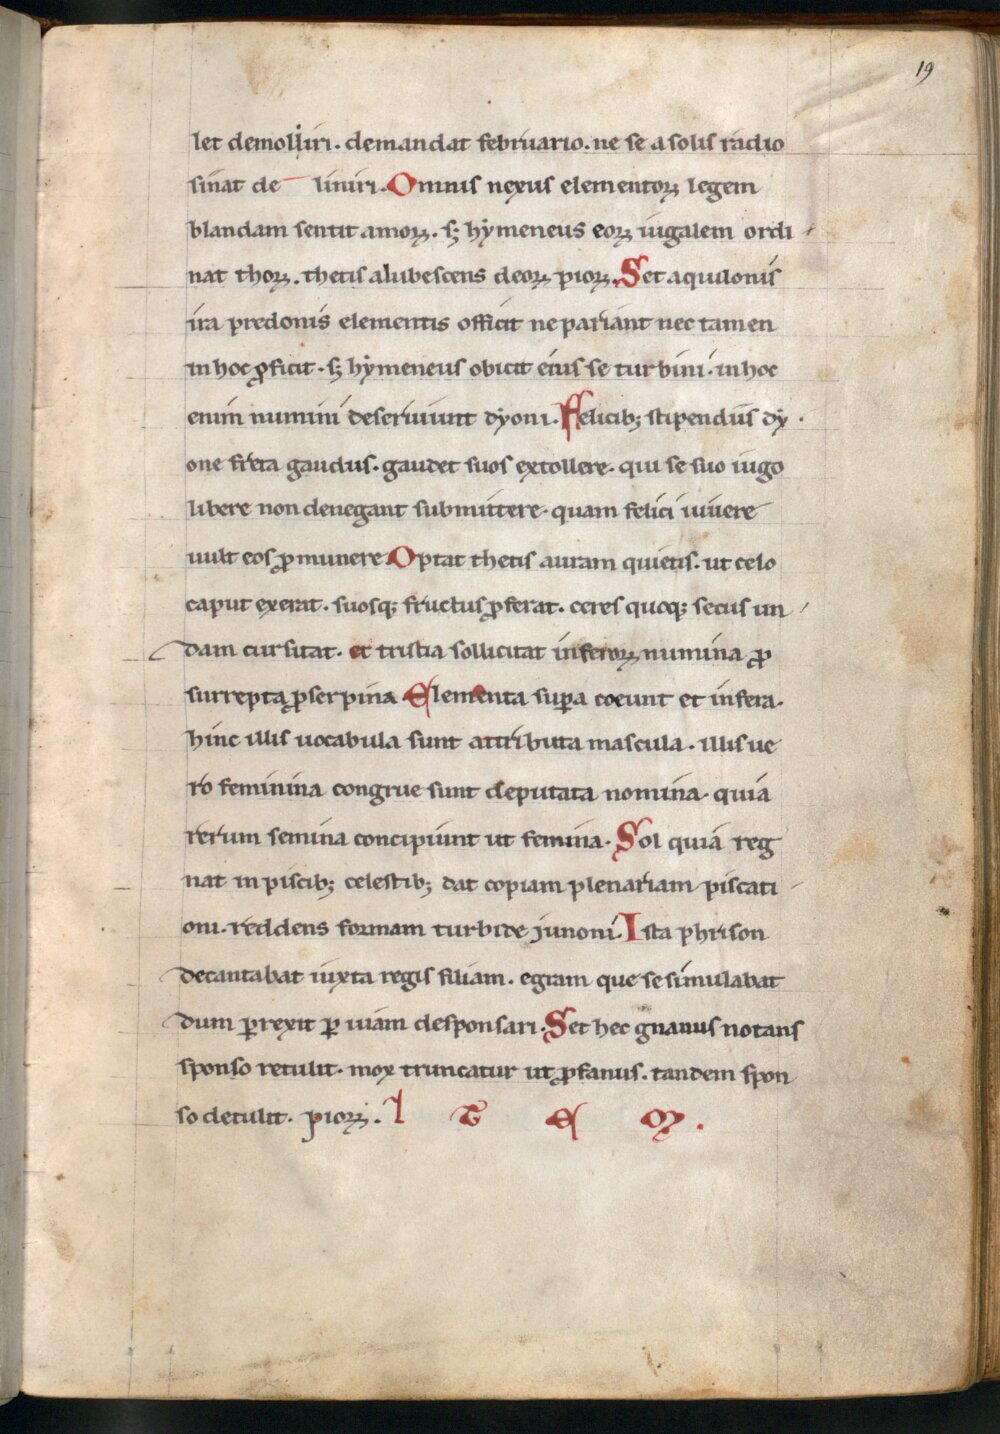 19
let demolliri. demandat februario. ne se a solis radio
sinat de liniri. Omnis nexus elementoꝝ legem
blandam sentit amoꝝ. sꝫ hymeneus eoꝝ iugalem ordi
nat thoꝝ. thetis alubescens deoꝝ pioꝝ. Set aquilonis
ira predonis elementis officit ne pariant nec tamen
in hoc ꝓficit. sꝫ hymeneus obicit eius se turbini. in hoc
enim numini deseruiunt dyoni. Felicibꝫ stipendiis dy
one freta gaudiis. gaudet suos extollere. qui se suo iugo
libere non denegant submittere. quam felici uiuere
uult eos ꝓ munere Optat thetis auram quietis. ut celo
caput exerat. suosqꝫ fructus ꝓferat. ceres quoqꝫ secus un
dam cursitat. et tristia sollicitat inferoꝝ numina ꝓ
surrepta ꝓserpina Elementa suꝑa coeunt et infera.
hinc illis uocabula sunt attributa mascula. illis ue
ro feminina congrue sunt deputata nomina. quia
rerum semina concipiunt ut femina. Sol quia reg
nat in piscibꝫ celestibꝫ dat copiam plenariam piscati
oni. reddens formam turbide junoni. Ista phrison
decantabat iuxta regis filiam. egram que se simulabat
dum ꝑrexit ꝑ uiam desponsari. Set hec gnanus notans
sponso retulit. mox truncatur ut ꝓfanus. tandem spon
so detulit. pioꝝ. I T E M.